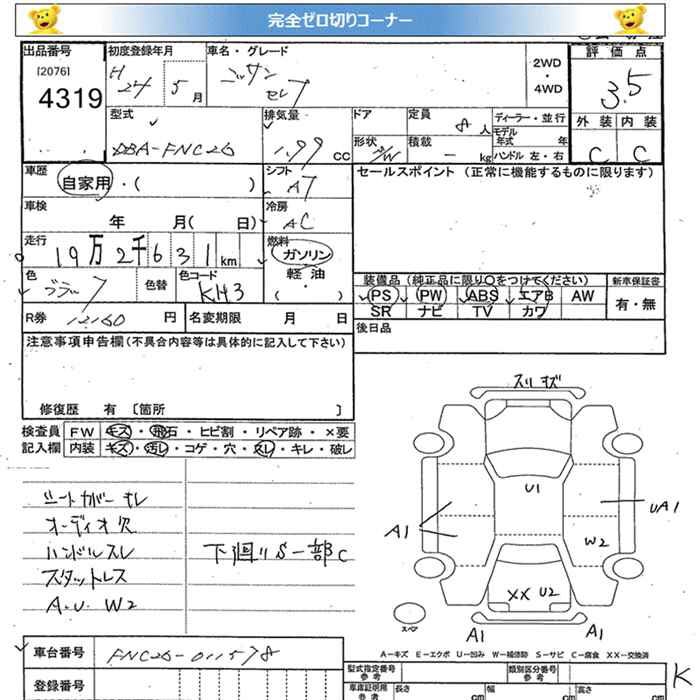 完全ゼロ切りコーナー
出品番号 初度登録年月 車名・グレード 2WD・4WD 評価点
[2076] 4319 H24 5月 ニッサン セレナ 3.5
型式 排気量 ドア 定員 ディーラー・並行 外装 内装
DBA-FNC26 1.99 cc 形状 /W 8人 モデル年式 年 C C
積載 - kg ハンドル 左・右
車歴 シフト セールスポイント (正常に機能するものに限ります)
自家用・( ) AT
車検 冷房
年 月( 日) AC
走行 燃料
19万2千631km ガソリン・軽油
色 色替 色コード ( ・ ) 装備品 (純正品に限り○をつけてください) 新車保証書
ブラック KH3 PS PW ABS エアB AW 有・無
SR ナビ TV カワ
R券 12160 円 名変期限 月 日 後日品
注意事項申告欄 (不具合内容等は具体的に記入して下さい)
修復歴 有 〔箇所 〕
検査員 FW キズ・飛石・ヒビ割・リペア跡・×要
記入欄 内装 キズ・汚レ・コゲ・穴・スレ・キレ・破レ
スリキズ
シートカバーキレ
オーディオ欠
ハンドルスレ
スタットレス
A.U.W2
下廻りS一部C
U1
UA1
A1
W2
XX U2
スペア
A1 A1
A-キズ E-エクボ U-凹み W-補修跡 S-サビ C-腐食 XX-交換済
車台番号 FNC26-011578
登録番号
型式指定番号 参考 類別区分番号 参考
車庫証明用 参考 長さ cm 幅 cm 高さ cm
K